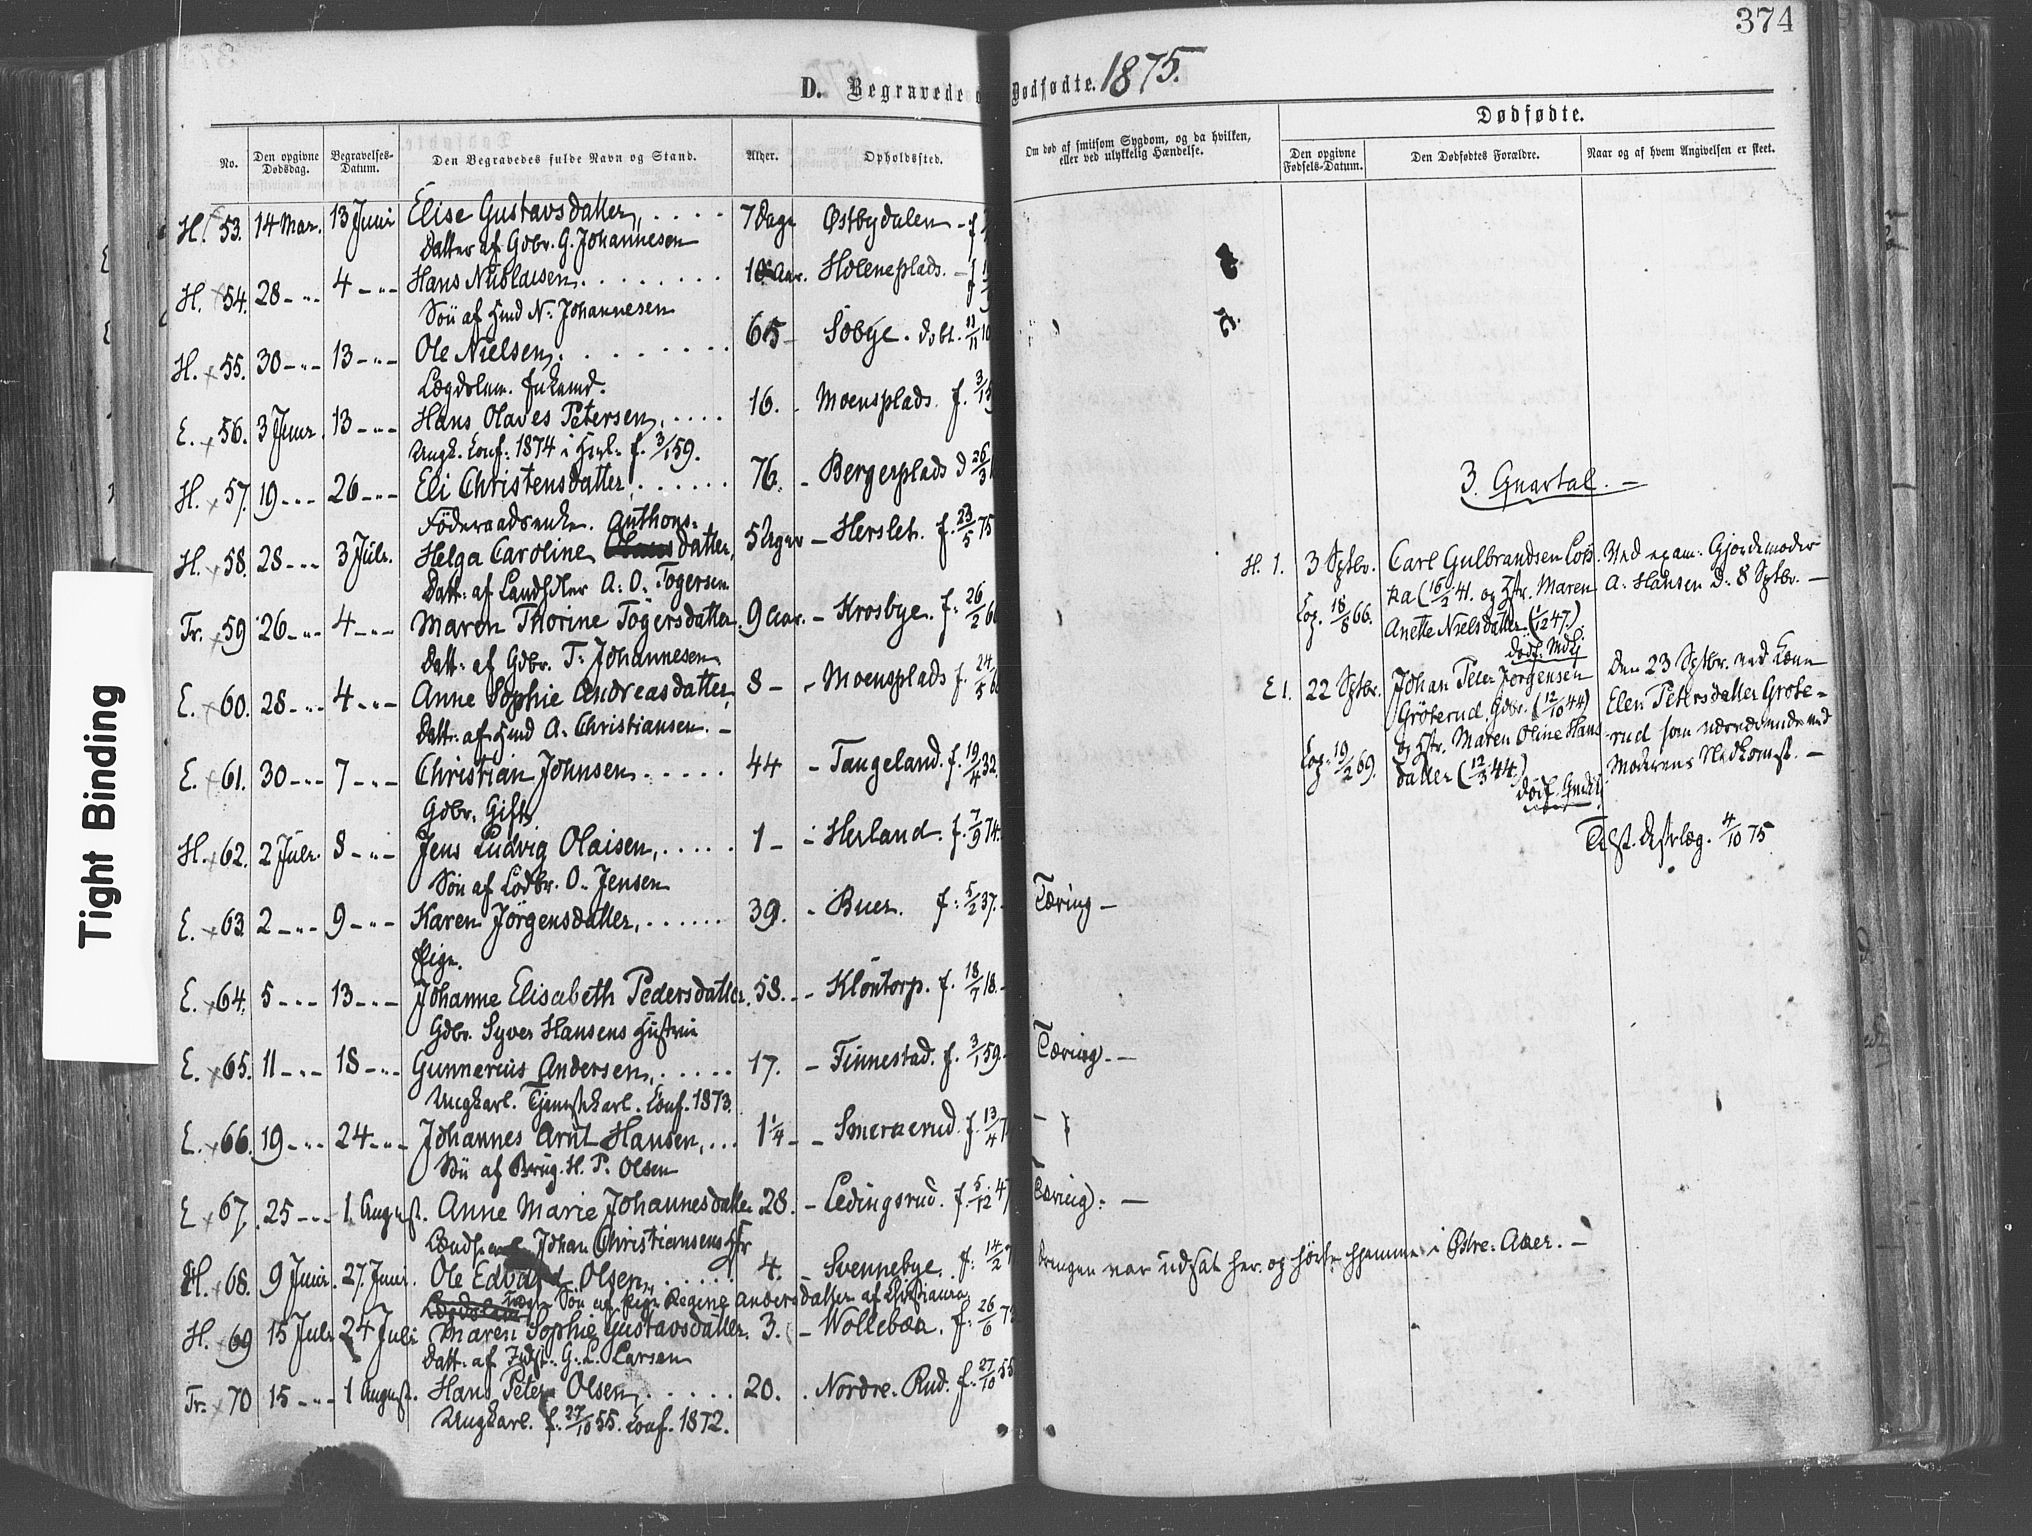 374
D. Begravede o Dødfødte. 1875.
No.
Den opgivne Dødsdag.
Begravelses-Datum.
Den Begravedes fulde Navn og Stand.
Alder.
Opholdssted.
Om død af smitsom Sygdom, og da hvilken, eller ved ulykkelig Hændelse.
Dødfødte.
Den opgivne Fødsels-Datum.
Den Dødfødtes Forældre.
Naar og af hvem Angivelsen er skeet.
H. 53. 14 Mar. 13 Juni Elise Gustavsdatter, 7 Dage Østbydalen - f
Datter af Gdbr. G. Johannesen
H. 54. 28 - " - 4 - " - Hans Nikolaisen. 10 Aar. Holeneplads. - f
Søn af Hmd N. Johannesen
H. 55. 30 - " - 13 - " - Ole Nielsen, 65 - Søbye. døbt. 12/11 10
Lægdslem. Enkemd.
E. 56. 3 Juni. 13 - " - Hans Olaves Petersen, 16. Moensplads. f. 3/1 59
Ungk. Conf. 1874 i f. 3/1 59.
H. 57. 19 - " - 26 - " - Eli Christensdatter, 76. - Bergerplads d 26/3
Föderaadsenke. Anthons-
H. 58. 28 - " - 3 Juli. Helga Caroline datter, 5 Uger - Herslet. f. 23/5 75
Datt. af Landhdler A. O. Togersen
Tr. 59 26 - " - 4 - " - Maren Thorine Togersdatter. 9 Aar. - Krosbye. f. 26/2 66
Datt. af Gdbr. T. Johannesen
E. 60. 28 - " - 4 - " - Anne Sophie Andreasdatter, 8 - - Moensplads f. 24/5 66
Datt. af Hmd A. Christiansen. -
E. 61. 30 - " - 7 - " - Christian Johnsen 44 - Tangeland. f. 19/4 32.
Gdbr. Gift
H. 62. 2 Juli. 8 - " - Jens Ludvig Olaisen, 1 - - Herland. f. 7/9 74.
Søn af Lödbr. O. Jensen
E. 63. 2 - " - 9 - " - Karen Jørgensdatter, 39. - Buer. f. 5/2 37. - Tæring -
Pige.
E. 64. 5 - " - 13 - " - Johanne Elisabeth Pedersdatter. 58. - - Klöntorp. f. 18/7 18. -
Gdbr. Syver Hansens Hustru
E. 65. 11 - " - 18 - " - Gunnerius Andersen, 17. - Tinnestad. f. 3/1 59. - Tæring. -
Ungkarl. Tjenestkarl. Conf. 1873.
E. 66. 19 - " - 24 - " - Johannes Arnt Hansen, 1 1/4 - - Smerkerud. f. 13/4 7
Søn af Brug. H. P. Olsen
E 67. 25 - " - 1 August. Anne Marie Johannesdatter 28. - Ledingsrud. f. 5/12 47 Tæring. -
Johan Christiansens Hstr
H. 68. 9 Juni. 27 Juni. Ole Edvard Olsen, 4. - Svennebye. f. 14/2 7 Drengen var udsat her. og hørte hjemme i Østre-Aker. -
Søn af Pige Regine Andersdatter af Christiania
H. 69 15 Juli 24 Juli Maren Sophie Gustavsdatter. 3. - Wollebæk. f. 26/6 72
Datt. af Indst. G. L. Larsen
Tr. 70 15 - " - 1 August. Hans Peter Olsen, 20. . Nordre. Rud. f. 27/10 55
Ungkarl. f. 27/10 55. Conf. 1872.
3. Quartal. -
H. 1. 3 Sptbr. Carl Gulbrandsen Ved exam. Gjordemoder
ka (16/2 41. og Hstr. Maren A. Hansen D. 8 Sptbr. -
Cop. 18/8 66. Anette Nielsdatter (1/12 47).
dødf.
E 1. 22 Sptbr. Johan Peter Jørgensen Den 23 Sptbr. ved
Gröterud, Gdbr. (12/10 44) Elen Petersdatter Gröte-
og Hstr. Maren Oline Hans rud som nærværende ved
Cop. 19/2 69. datter (12/3 44.) Moderens Nedkomst. -
dødf.
4/10 75
Tight Binding